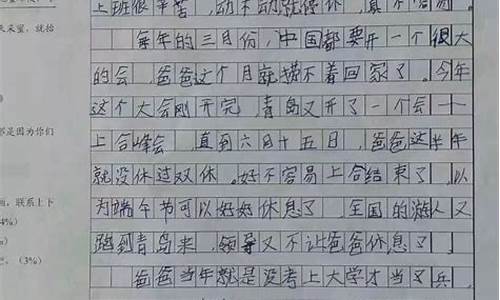 上班很辛苦，动不动就停休，真不容易。
每年的三月份，中国都要开一个很大
的会，爸爸这个月就摸不着回家了。今年
这个大会刚开完，青岛又开了一个会——
上合峰会，直到六月十五日，爸爸这半年
就没休过双休。好不容易上合结束了，以
为端午节可以好好休息了，全国的游人又
跑到青岛来，领导又不让爸爸休息了。
爸爸当年就是没考上大学才当了兵，
天来望，就抬
都是因为你们
联系上下
4%）
（3%）